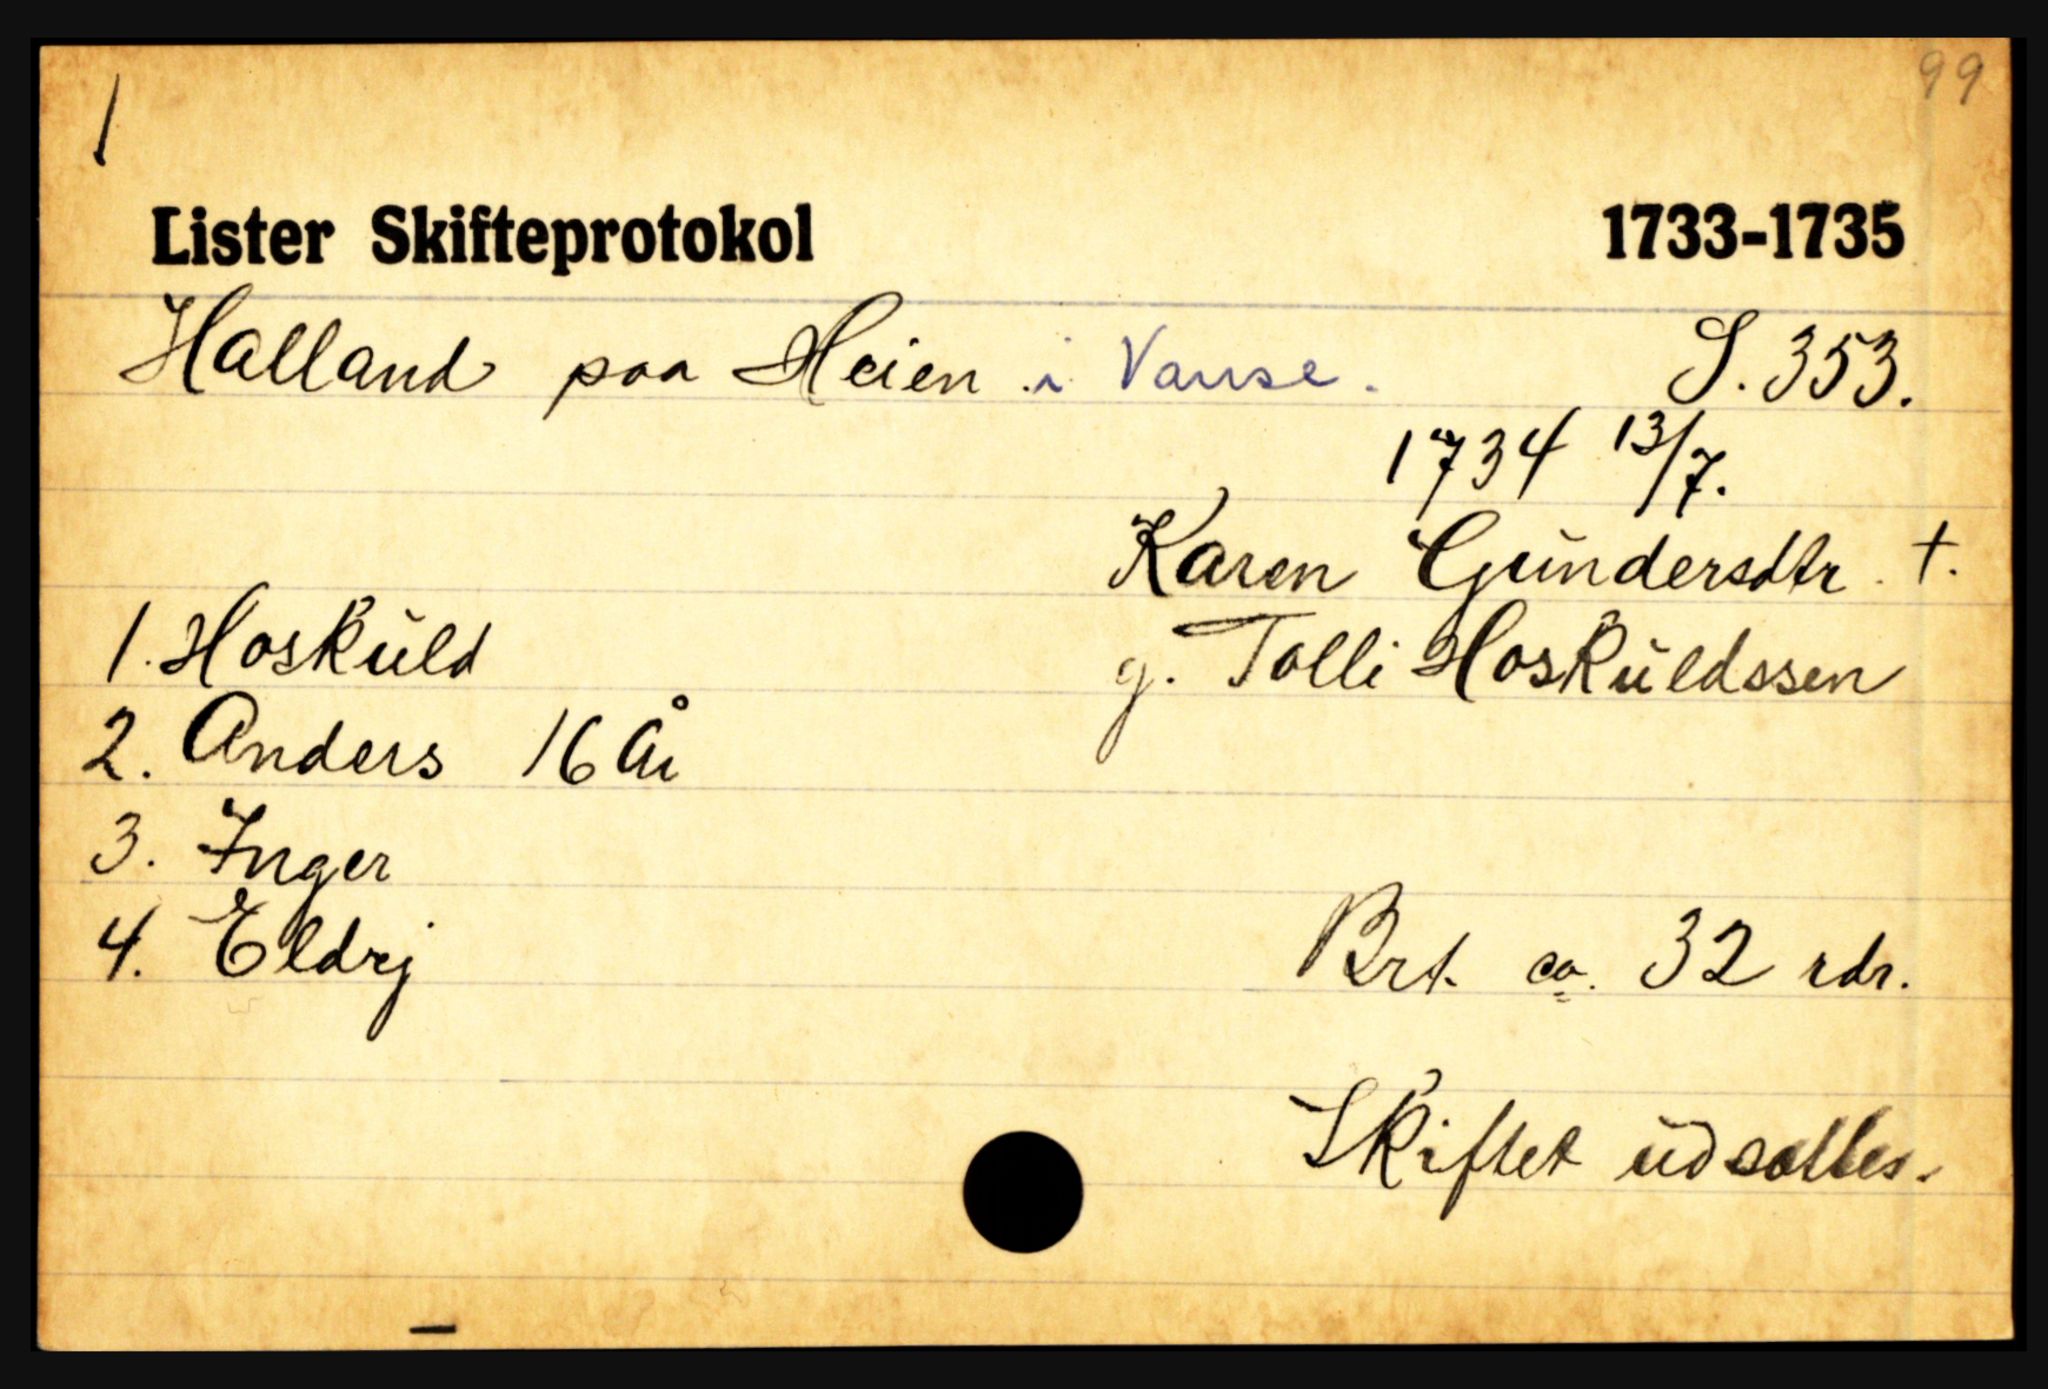 1
99
Lister Skifteprotokol 1733-1735
Halland paa Heien i Vanse. S. 353.
1734 13/7.
Karen Gundersdtr. †.
1. Hoskuld g. Tolli Hoskuldssen
2. Anders 16 År
3. Inger
4. Eldrj Brt. ca. 32 rdr.
Skiftet udsattes.